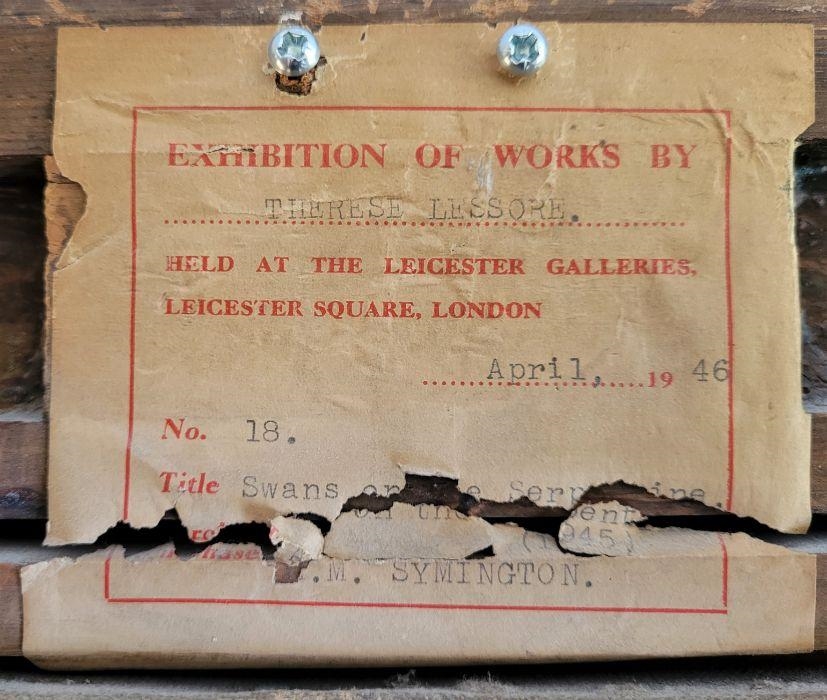 EXHIBITION OF WORKS BY
THERESE LESSORE.
HELD AT THE LEICESTER GALLERIES,
LEICESTER SQUARE, LONDON
April, 19 46
No. 18.
Title Swans on the Serpentine.
(1945)
.M. SYMINGTON.